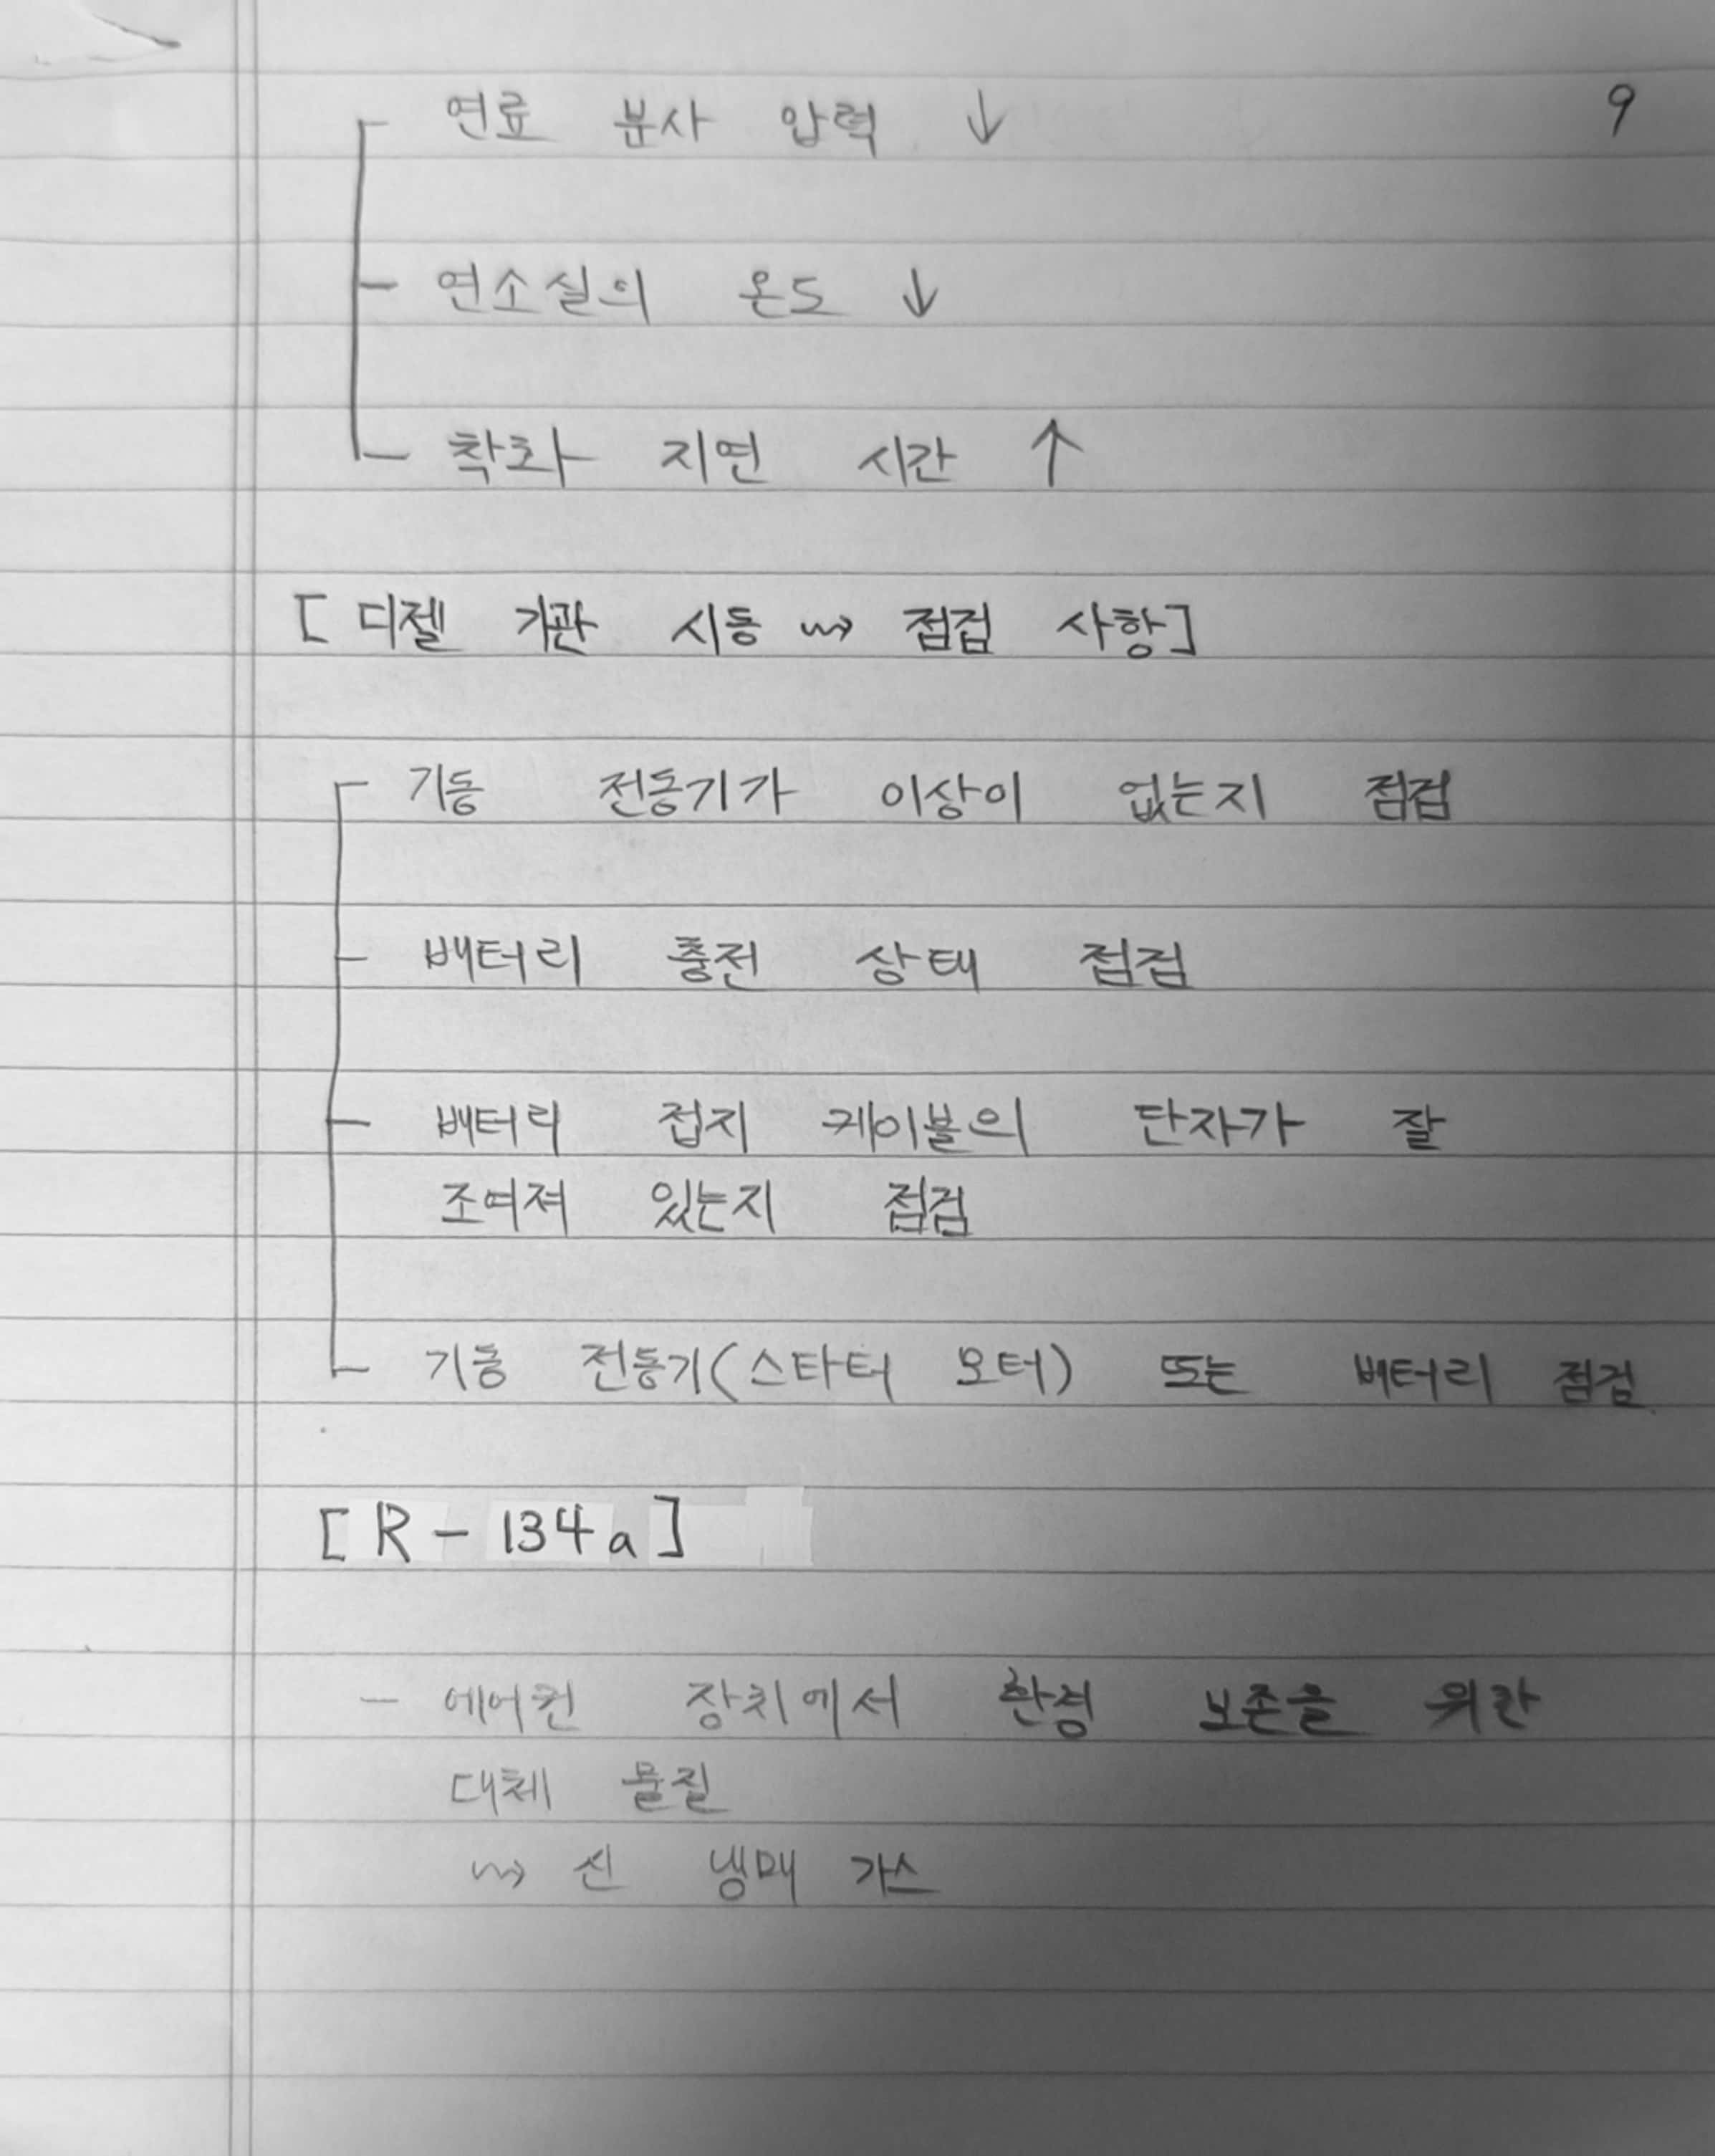 9
연료 분사 압력 ↓
- 연소실의 온도 ↓
착화 지연 시간 ↑
[디젤 기관 시동 ⇝ 점검 사항]
기동 전동기가 이상이 없는지 점검
- 배터리 충전 상태 점검
- 배터리 접지 케이블의 단자가 잘
조여져 있는지 점검
기동 전동기(스타터 모터) 또는 배터리 점검
[R-134a]
- 에어컨 장치에서 환경 보존을 위한
대체 물질
⇝ 신 냉매 가스